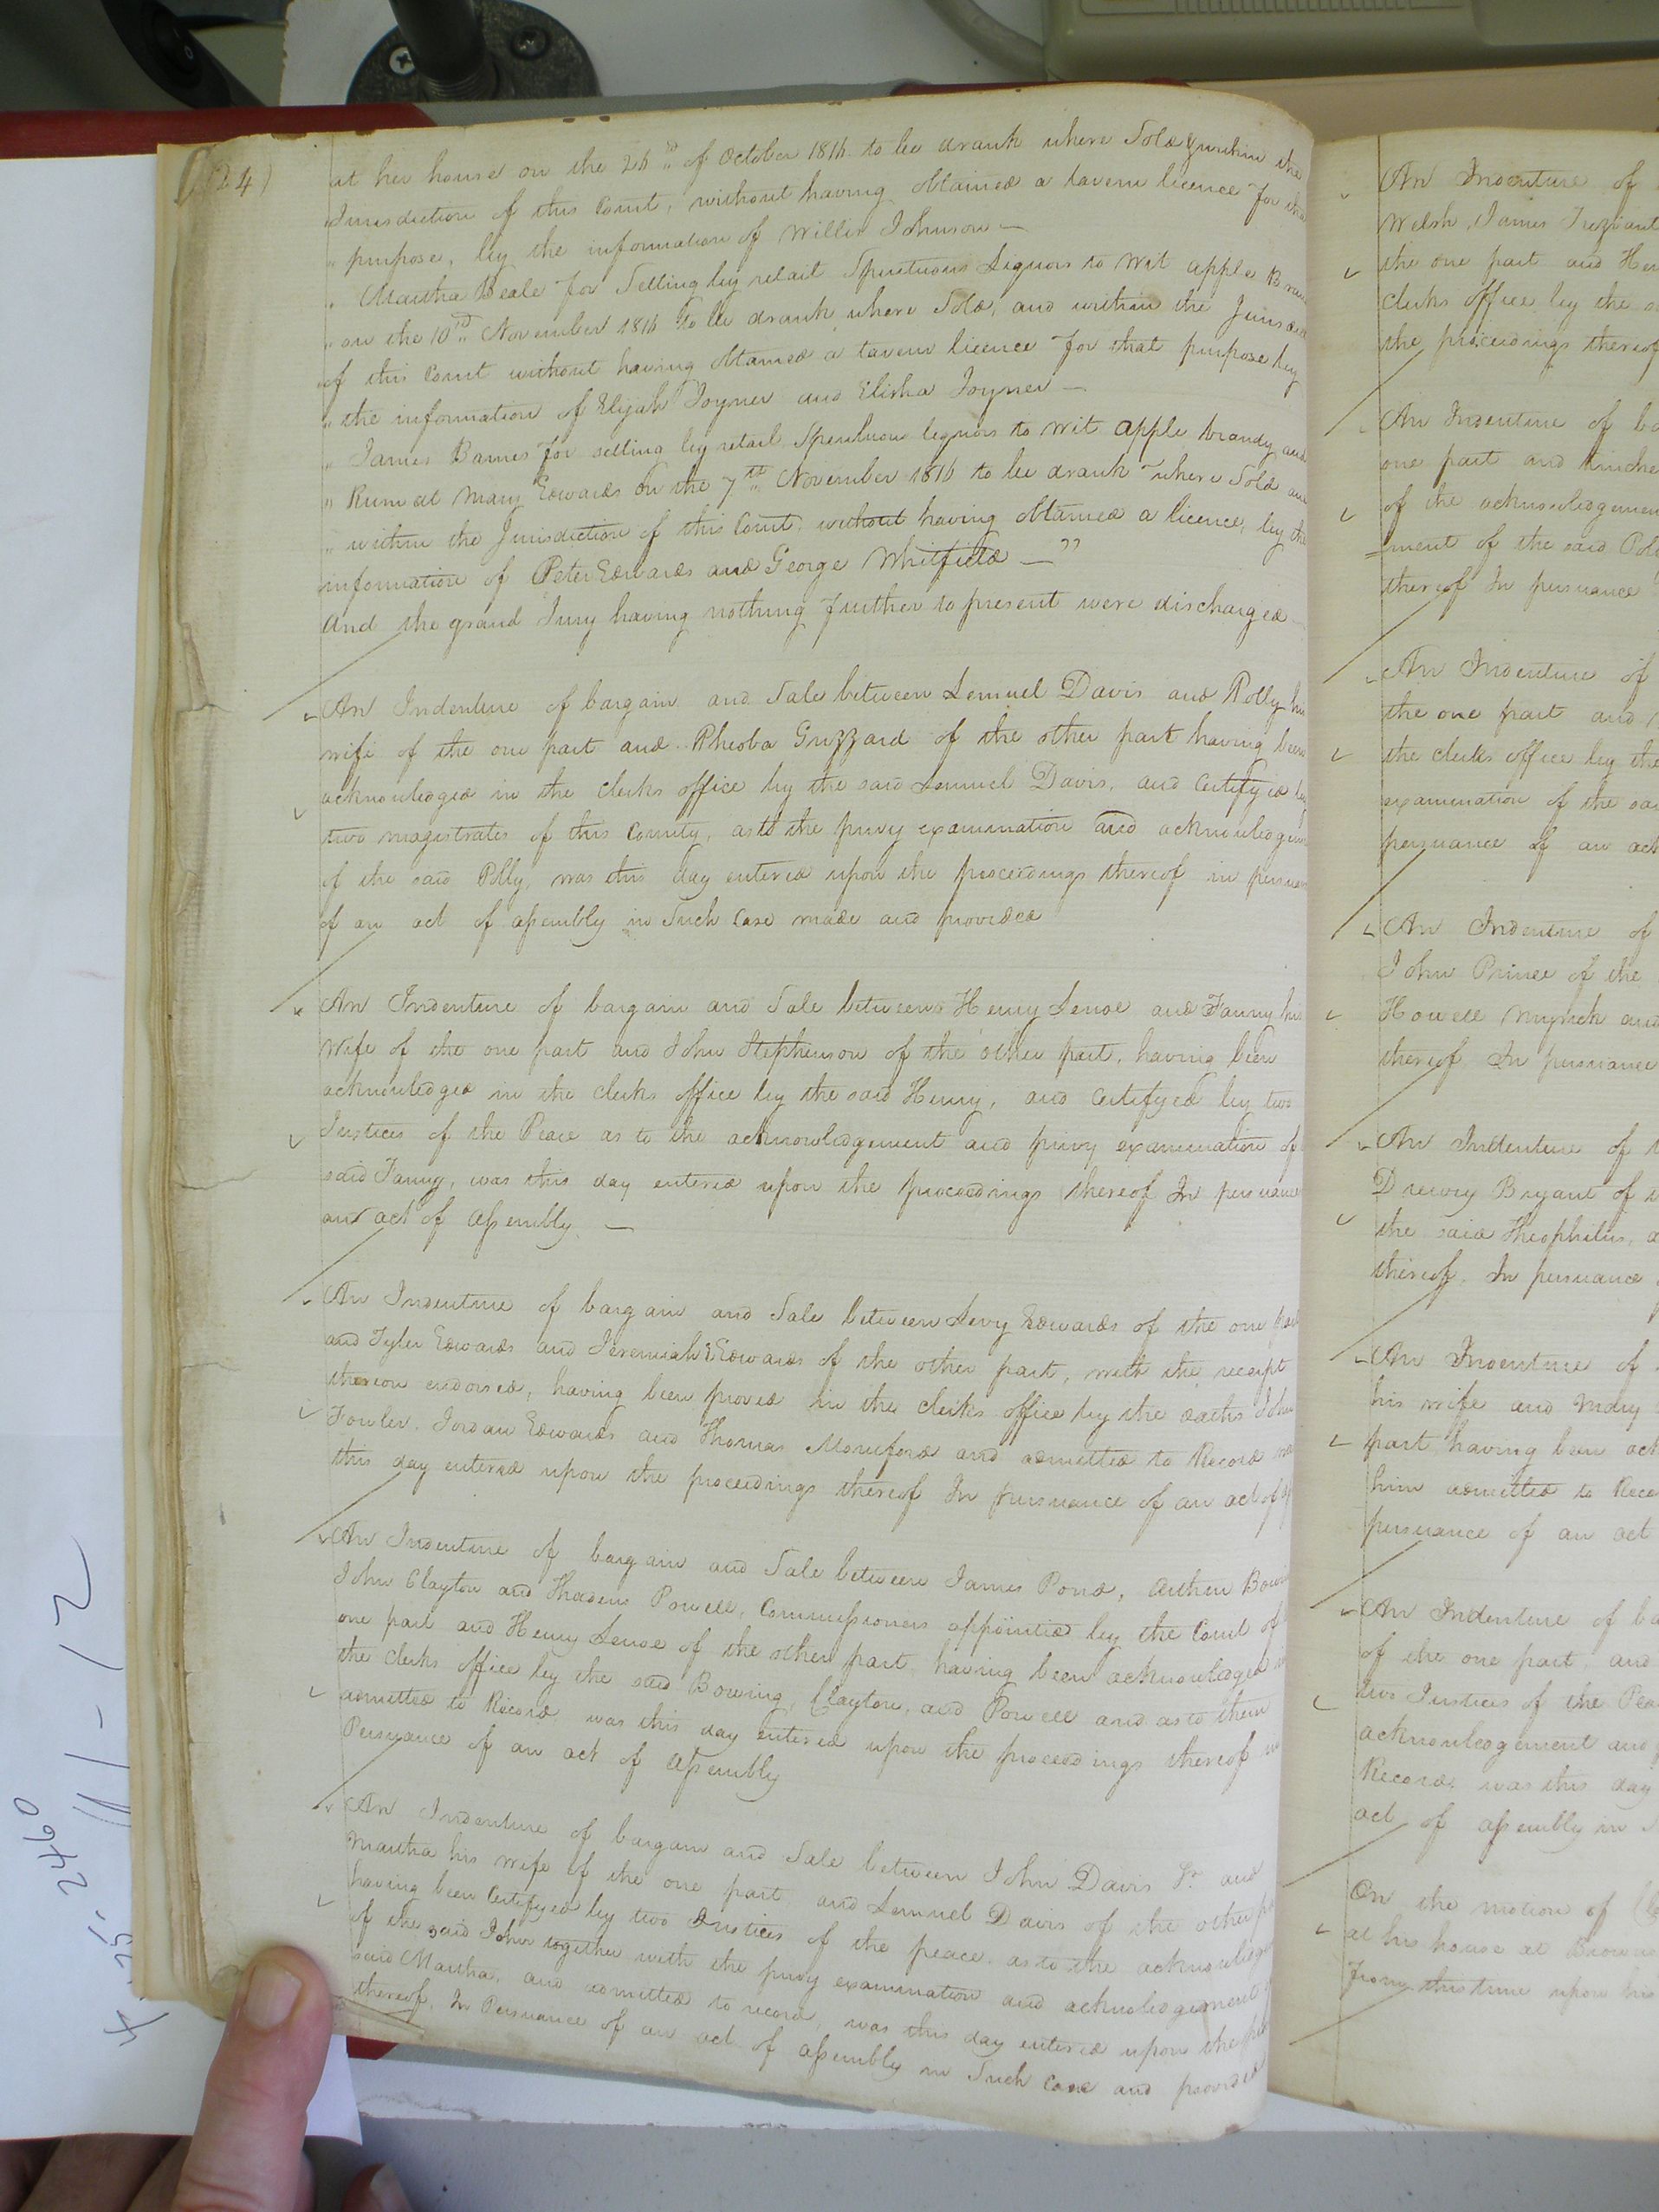 (24)
at her house on the 26th of October 1816 to be drank where Sold & within the
Jurisdiction of this Court, without having obtained a tavern licence for that
" purpose, by the information of Willis Johnson —
" Martha Beale for Selling by retail Spirituous Liquors to wit apple
" on the 10th November 1816 to be drank where Sold, and within the
of this Court without having obtained a tavern licence for that purpose by
" the information of Elijah Joyner and Elisha Joyner —
" James Barnes for selling by retail Spirituous liquors to wit apple brandy and
" Rum at Mary Edwards on the 7th November 1816 to be drank where Sold and
" within the Jurisdiction of this Court without having obtained a licence, by the
information of Peter Edwards and George Whitfield — "
And the grand Jury having nothing further to present were discharged
An Indenture of bargain and Sale between Lemuel Davis and Polly his
wife of the one part and Pheoba Grizzard of the other part having been
acknowledged in the clerks office by the said Lemuel Davis, and Certifyed by
two magistrates of this County, as to the privy examination and
of the said Polly, was this day entered upon the proceedings thereof in
of an act of assembly in Such Case made and provided
An Indenture of bargain and Sale between Henry Lense and Fanny his
Wife of the one part and John Stephenson of the other part, having been
acknowledged in the clerks office by the said Henry, and Certifyed by two
Justices of the Peace as to the acknowledgement and privy examination of
said Fanny, was this day entered upon the proceedings thereof In persuance
an act of assembly. —
An Indenture of bargain and Sale between Levy Edwards of the one part
and Tyler Edwards and Jeremiah Edwards of the other part, with the receipt
thereon endorsed, having been proved in the clerks office by the oaths John
Fowler, Jordan Edwards and Thomas and admitted to Record was
this day entered upon the proceedings thereof In persuance of an act of
An Indenture of bargain and Sale between James Pond,
John Clayton and Powell, Commissioners appointed by the Court of
one part and Henry Lense of the other part, having been acknowledged in
the clerks office by the said Bowing, Clayton, and Powell and as to them
admitted to Record was this day entered upon the proceedings thereof in
Persuance of an act of assembly
An Indenture of bargain and Sale between John Davis Sr. and
Martha his wife of the one part and Lemuel Davis of the other
having been Certifyed by two Justices of the peace as to the
of the said John together with the privy examination and acknowledgement
said Martha, and admitted to record, was this day entered upon the
thereof. In Persuance of an act of assembly in Such Case and provided
An Indenture of
Welsh, James
the one part and
Clerks office by the
the proceedings thereof
An Indenture of
one part and
of the acknowledgement
=ment of the said
thereof In persuance
An Indenture of
the one part and
the clerks office by the
examination of the
persuance of an act
An Indenture of
John Prince of the
Howell Myrick and
thereof In persuance
An Indenture of
Drewry Bryant of
the said Theophilus,
thereof. In persuance
An Indenture of
his wife and Mary
part having been
him admitted to
persuance of an act
An Indenture of
of the one part, and
two Justices of the
acknowledgement and
Record, was this day
act of assembly in
On the motion of
at his house at
from this time upon his
11-12
2460